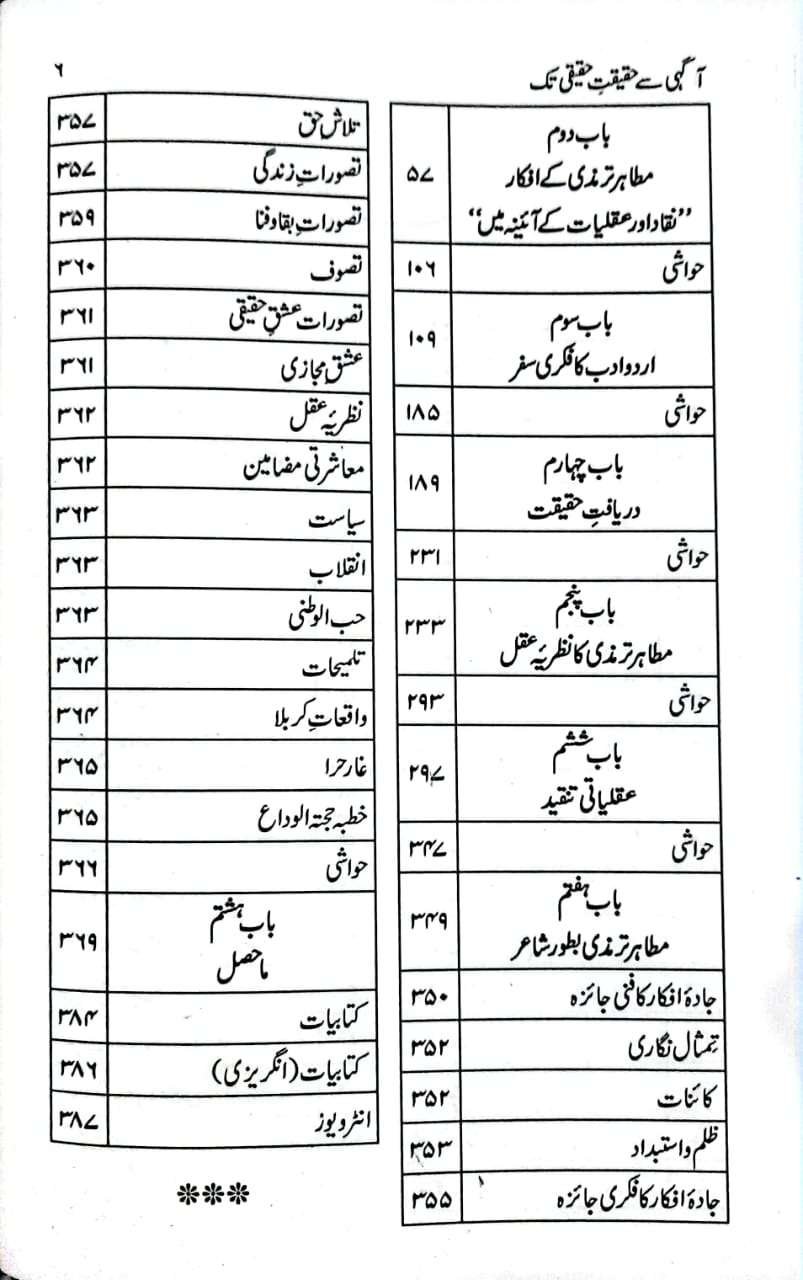 آگہی سے حقیقتِ حقیقی تک
۶
باب دوم
مطاہر ترمذی کے افکار
”نقاد اور عقلیات کے آئینہ میں“
۵۷
حواشی
۱۰۶
باب سوم
اردو ادب کا فکری سفر
۱۰۹
حواشی
۱۸۵
باب چہارم
دریافتِ حقیقت
۱۸۹
حواشی
۲۳۱
باب پنجم
مطاہر ترمذی کا نظریۂ عقل
۲۳۳
حواشی
۲۹۳
باب ششم
عقلیاتی تنقید
۲۹۷
حواشی
۳۴۷
باب ہفتم
مطاہر ترمذی بطور شاعر
۳۴۹
جادۂ افکار کا فنی جائزہ
۳۵۰
تمثال نگاری
۳۵۲
کائنات
۳۵۲
ظلم و استبداد
۳۵۳
جادۂ افکار کا فکری جائزہ
۳۵۵
تلاش حق
۳۵۷
تصوراتِ زندگی
۳۵۷
تصوراتِ بقا و فنا
۳۵۹
تصوف
۳۶۰
تصورات عشقِ حقیقی
۳۶۱
عشقِ مجازی
۳۶۱
نظریۂ عقل
۳۶۲
معاشرتی مضامین
۳۶۲
سیاست
۳۶۳
انقلاب
۳۶۳
حب الوطنی
۳۶۳
تلمیحات
۳۶۴
واقعاتِ کربلا
۳۶۴
غار حرا
۳۶۵
خطبہ حجتہ الوداع
۳۶۵
حواشی
۳۶۶
باب ہشتم
ماحصل
۳۶۹
کتابیات
۳۸۴
کتابیات (انگریزی)
۳۸۶
انٹرویوز
۳۸۷
***